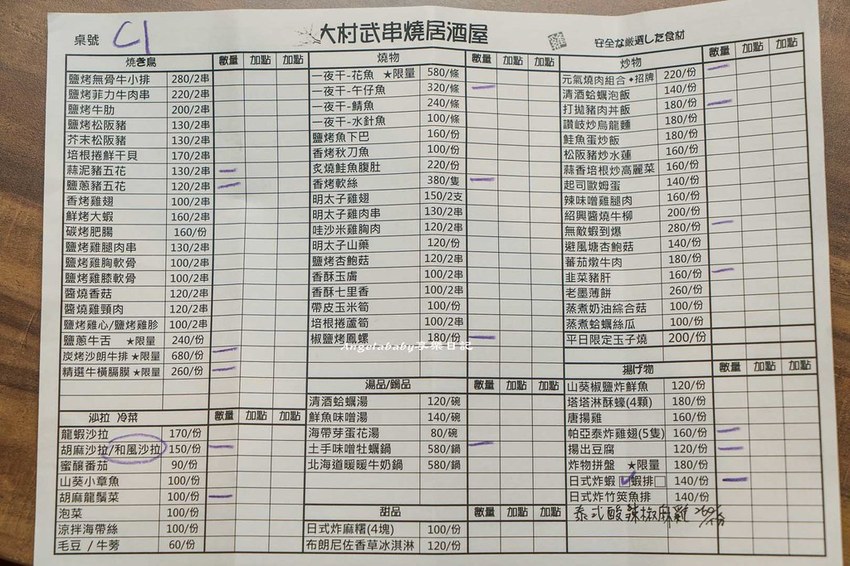 桌號 C1
大村武串燒居酒屋
安全な厳選した食材
燒き鳥 數量 加點 加點
鹽烤無骨牛小排 280/2串
鹽烤菲力牛肉串 220/2串
鹽烤牛肋 200/2串
鹽烤松阪豬 130/2串
芥末松阪豬 130/2串
培根捲鮮干貝 170/2串
蒜泥豬五花 130/2串
鹽蔥豬五花 120/2串
香烤雞翅 100/2串
鮮烤大蝦 160/2串
碳烤肥腸 160/份
鹽烤雞腿肉串 130/2串
鹽烤雞胸軟骨 100/2串
鹽烤雞膝軟骨 100/2串
醬燒香菇 120/2串
醬燒雞頸肉 120/2串
鹽烤雞心/鹽烤雞胗 100/2串
鹽蔥牛舌 ★限量 240/份
炭烤沙朗牛排★限量 680/份
精選牛橫膈膜★限量 260/份
沙拉 冷菜 數量 加點 加點
龍蝦沙拉 170/份
胡麻沙拉/和風沙拉 150/份
蜜釀番茄 90/份
山葵小章魚 100/份
胡麻龍鬚菜 100/份
泡菜 100/份
涼拌海帶絲 100/份
毛豆 / 牛蒡 60/份
燒物 數量 加點 加點
一夜干-花魚 ★限量 580/條
一夜干-午仔魚 320/條
一夜干-鯖魚 240/條
一夜干-水針魚 100/條
鹽烤魚下巴 160/份
香烤秋刀魚 100/份
炙燒鮭魚腹肚 220/份
香烤軟絲 380/隻
明太子雞翅 150/2支
明太子雞肉串 130/2串
哇沙米雞胸肉 120/2串
明太子山藥 120/份
鹽烤杏鮑菇 120/2串
香酥玉膚 100/2串
香酥七里香 100/2串
帶皮玉米筍 100/2串
培根捲蘆筍 100/2串
椒鹽烤鳳螺 180/份
Angelababy享樂日記
湯品/鍋品 數量 加點 加點
清酒蛤蠣湯 120/碗
鮮魚味噌湯 140/碗
海帶芽蛋花湯 80/碗
土手味噌牡蠣鍋 580/鍋
北海道暖暖牛奶鍋 580/鍋
甜品 數量 加點 加點
日式炸麻糬(4塊) 100/份
布朗尼佐香草冰淇淋 120/份
炒物 數量 加點 加點
元氣燒肉組合✦招牌 220/份
清酒蛤蠣泡飯 140/份
打拋豬肉丼飯 180/份
讚岐炒烏龍麵 180/份
鮭魚蛋炒飯 180/份
松阪豬炒水蓮 160/份
蒜香培根炒高麗菜 160/份
起司歐姆蛋 140/份
辣味噌雞腿肉 160/份
紹興醬燒牛柳 200/份
無敵蝦到爆 280/份
避風塘杏鮑菇 140/份
蕃茄燉牛肉 180/份
韭菜豬肝 160/份
老墨薄餅 260/份
蒸煮奶油綜合菇 100/份
蒸煮蛤蠣絲瓜 100/份
平日限定玉子燒 200/份
揚げ物 數量 加點 加點
山葵椒鹽炸鮮魚 120/份
塔塔淋酥蠔(4顆) 180/份
唐揚雞 160/份
帕亞泰炸雞翅(5隻) 160/份
揚出豆腐 120/份
炸物拼盤 ★限量 180/份
日式炸蝦☑蝦排☐ 140/份
日式炸竹筴魚排 140/份
泰式酸辣椒麻雞 260/份